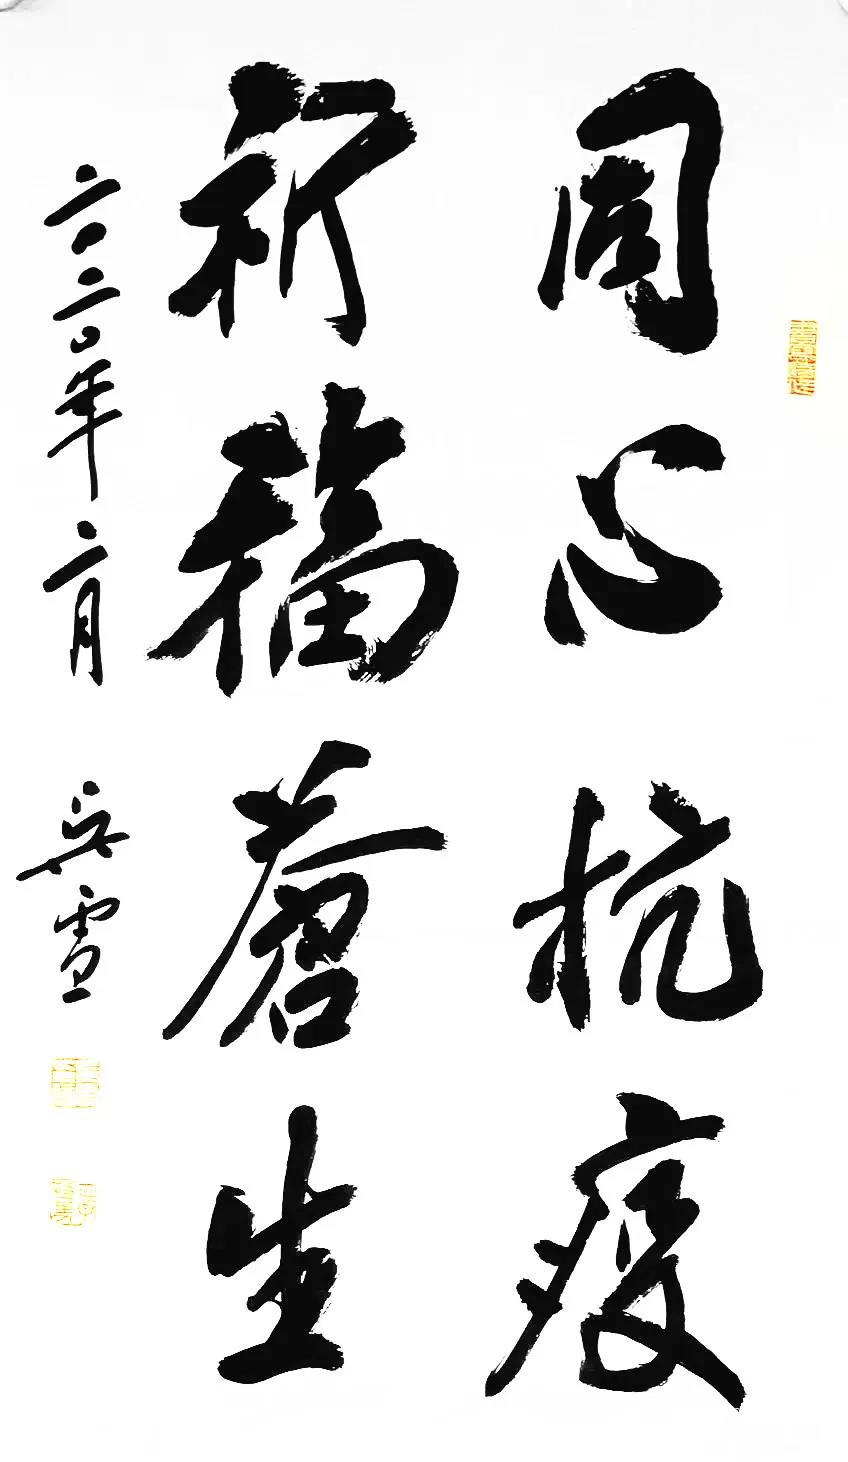 同心抗疫
祈福苍生
二〇二〇年二月 吴雪